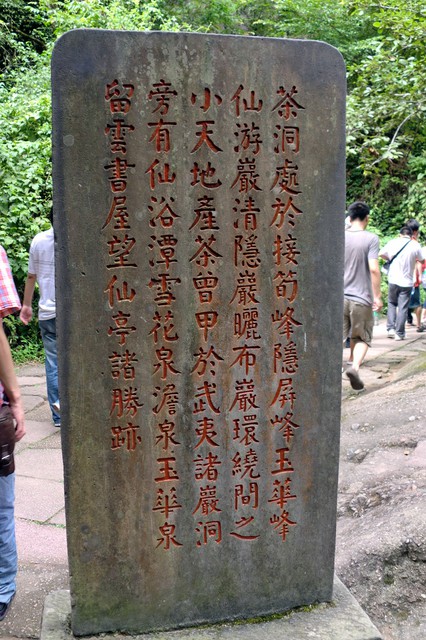 茶洞處於接筍峰隱屏峰玉華峰
仙游巖清隱巖曬布巖環繞間之
小天地產茶曾甲於武夷諸巖洞
旁有仙浴潭雪花泉澹泉玉華泉
留雲書屋望仙亭諸勝跡